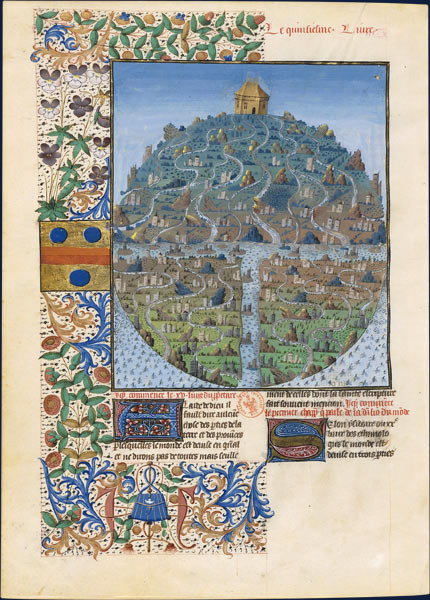 Le quinsiesme. Livre
Icy commence le xv. livre
Laide de dieu il
fault dire aucune
chose des pties de la
terre et des provices
lesquelles le monde est deuise en gnal
et ne dirons pas de toutes mais seulle
ment de celles dont la sainte escripture
fait souvent mencion. Icy commence
le premier chap qui parle de la diuisio du mode
Selon ysidore ou xv
liure des ethimolo
gies le monde est
deuise en trois pties